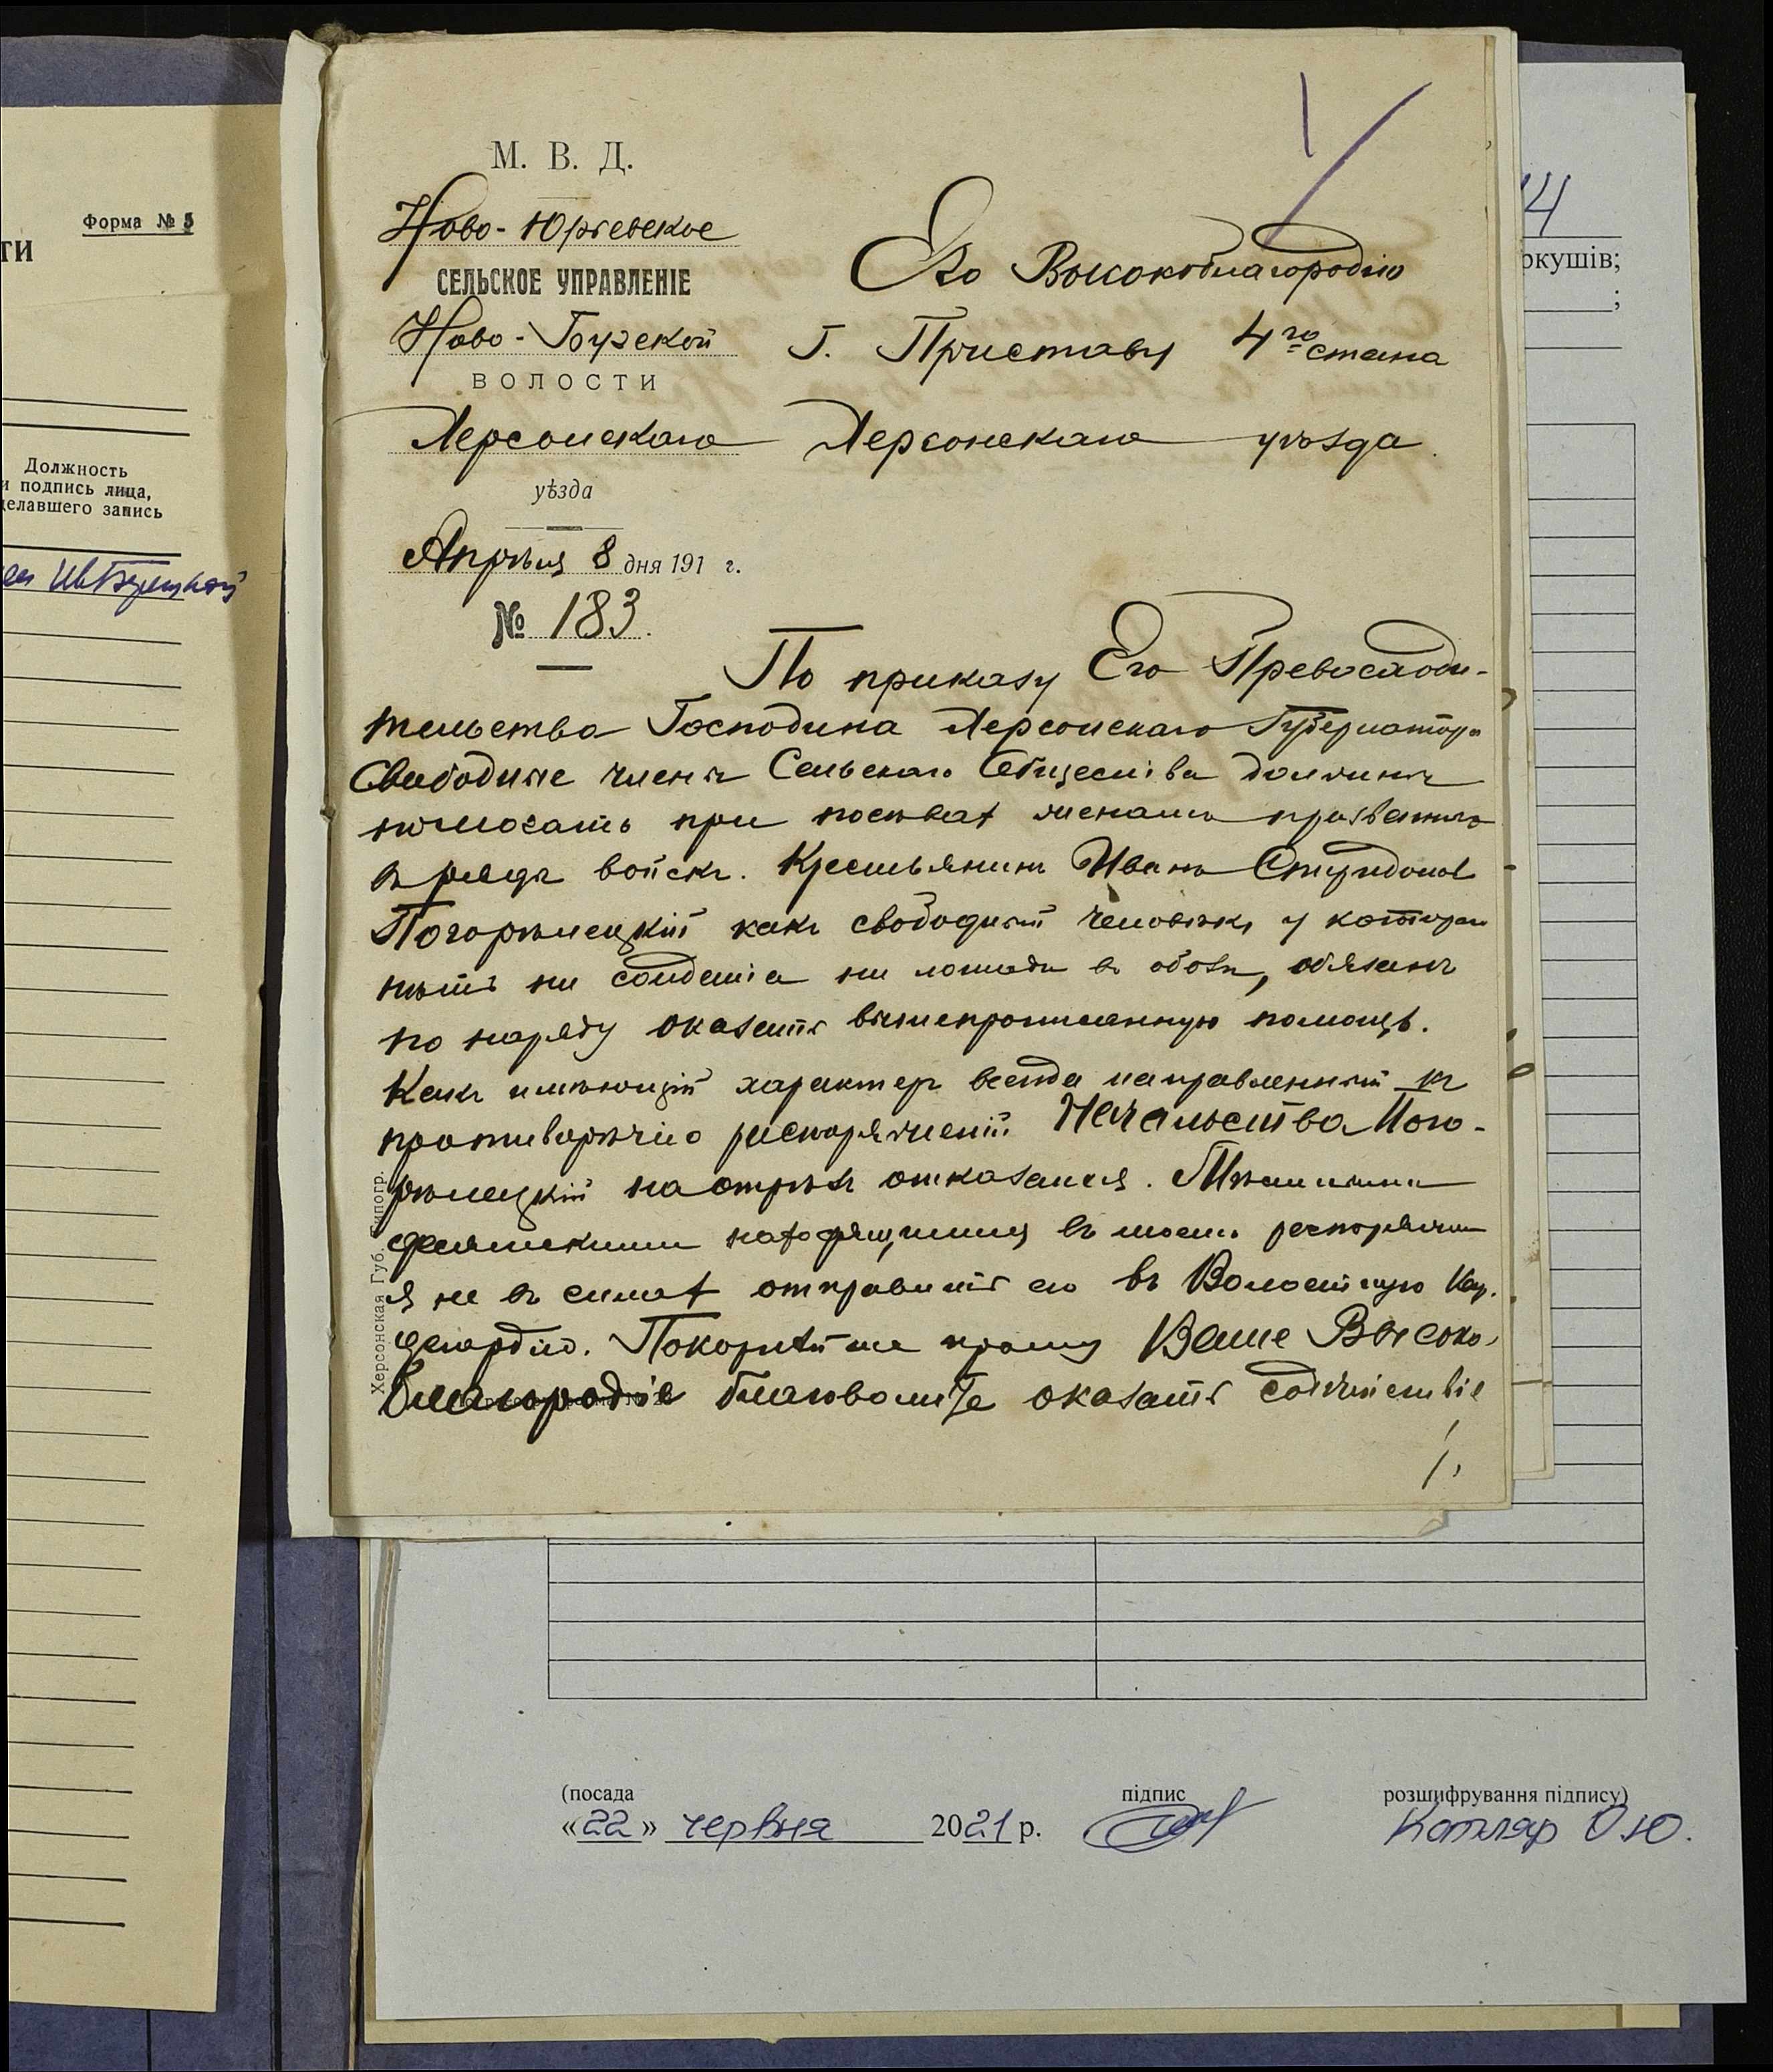 Форма № 5
ТИ
Должность
и подпись лица,
делавшего запись
М. В. Д.
Ново-Юрьевское
СЕЛЬСКОЕ УПРАВЛЕНІЕ
Ново-Бугской
ВОЛОСТИ
Херсонскаго
уѣзда
Апрѣля 8 дня 191 г.
№ 183.
Его Высокоблагородію
Г. Приставу 4го стана
Херсонскаго уѣзда.
По приказу Его Превосходи-
тельства Господина Херсонскаго Губернатора
Свободные члены Сельскаго Общества должны
помогать при посѣвах женамъ призванныхъ
въ ряды войскъ. Крестьянинъ Иванъ Спиридонов
Погорѣлецкій какъ свободный человѣкъ, у которого
нѣтъ ни солдатіа ни лошади в обозѣ, обязанъ
по наряду оказать вышепрописанную помощь.
Какъ имѣющій характер всегда направленный къ
противорѣчію распоряженій Начальства Пого-
рѣлецкій на отрѣзъ отказался.
находящимися въ моемъ распоряжении
я не въ силах отправить его въ Волостную Кор.
дегардію. Покорнѣйше прошу Ваше Высоко-
благородіе благоволите оказать содѣйствіе
Херсонская Губ. Типогр.
14
ркушів;
;
(посада
підпис
розшифрування підпису)
«22» червня 2021 р.
Котляр О.Ю.